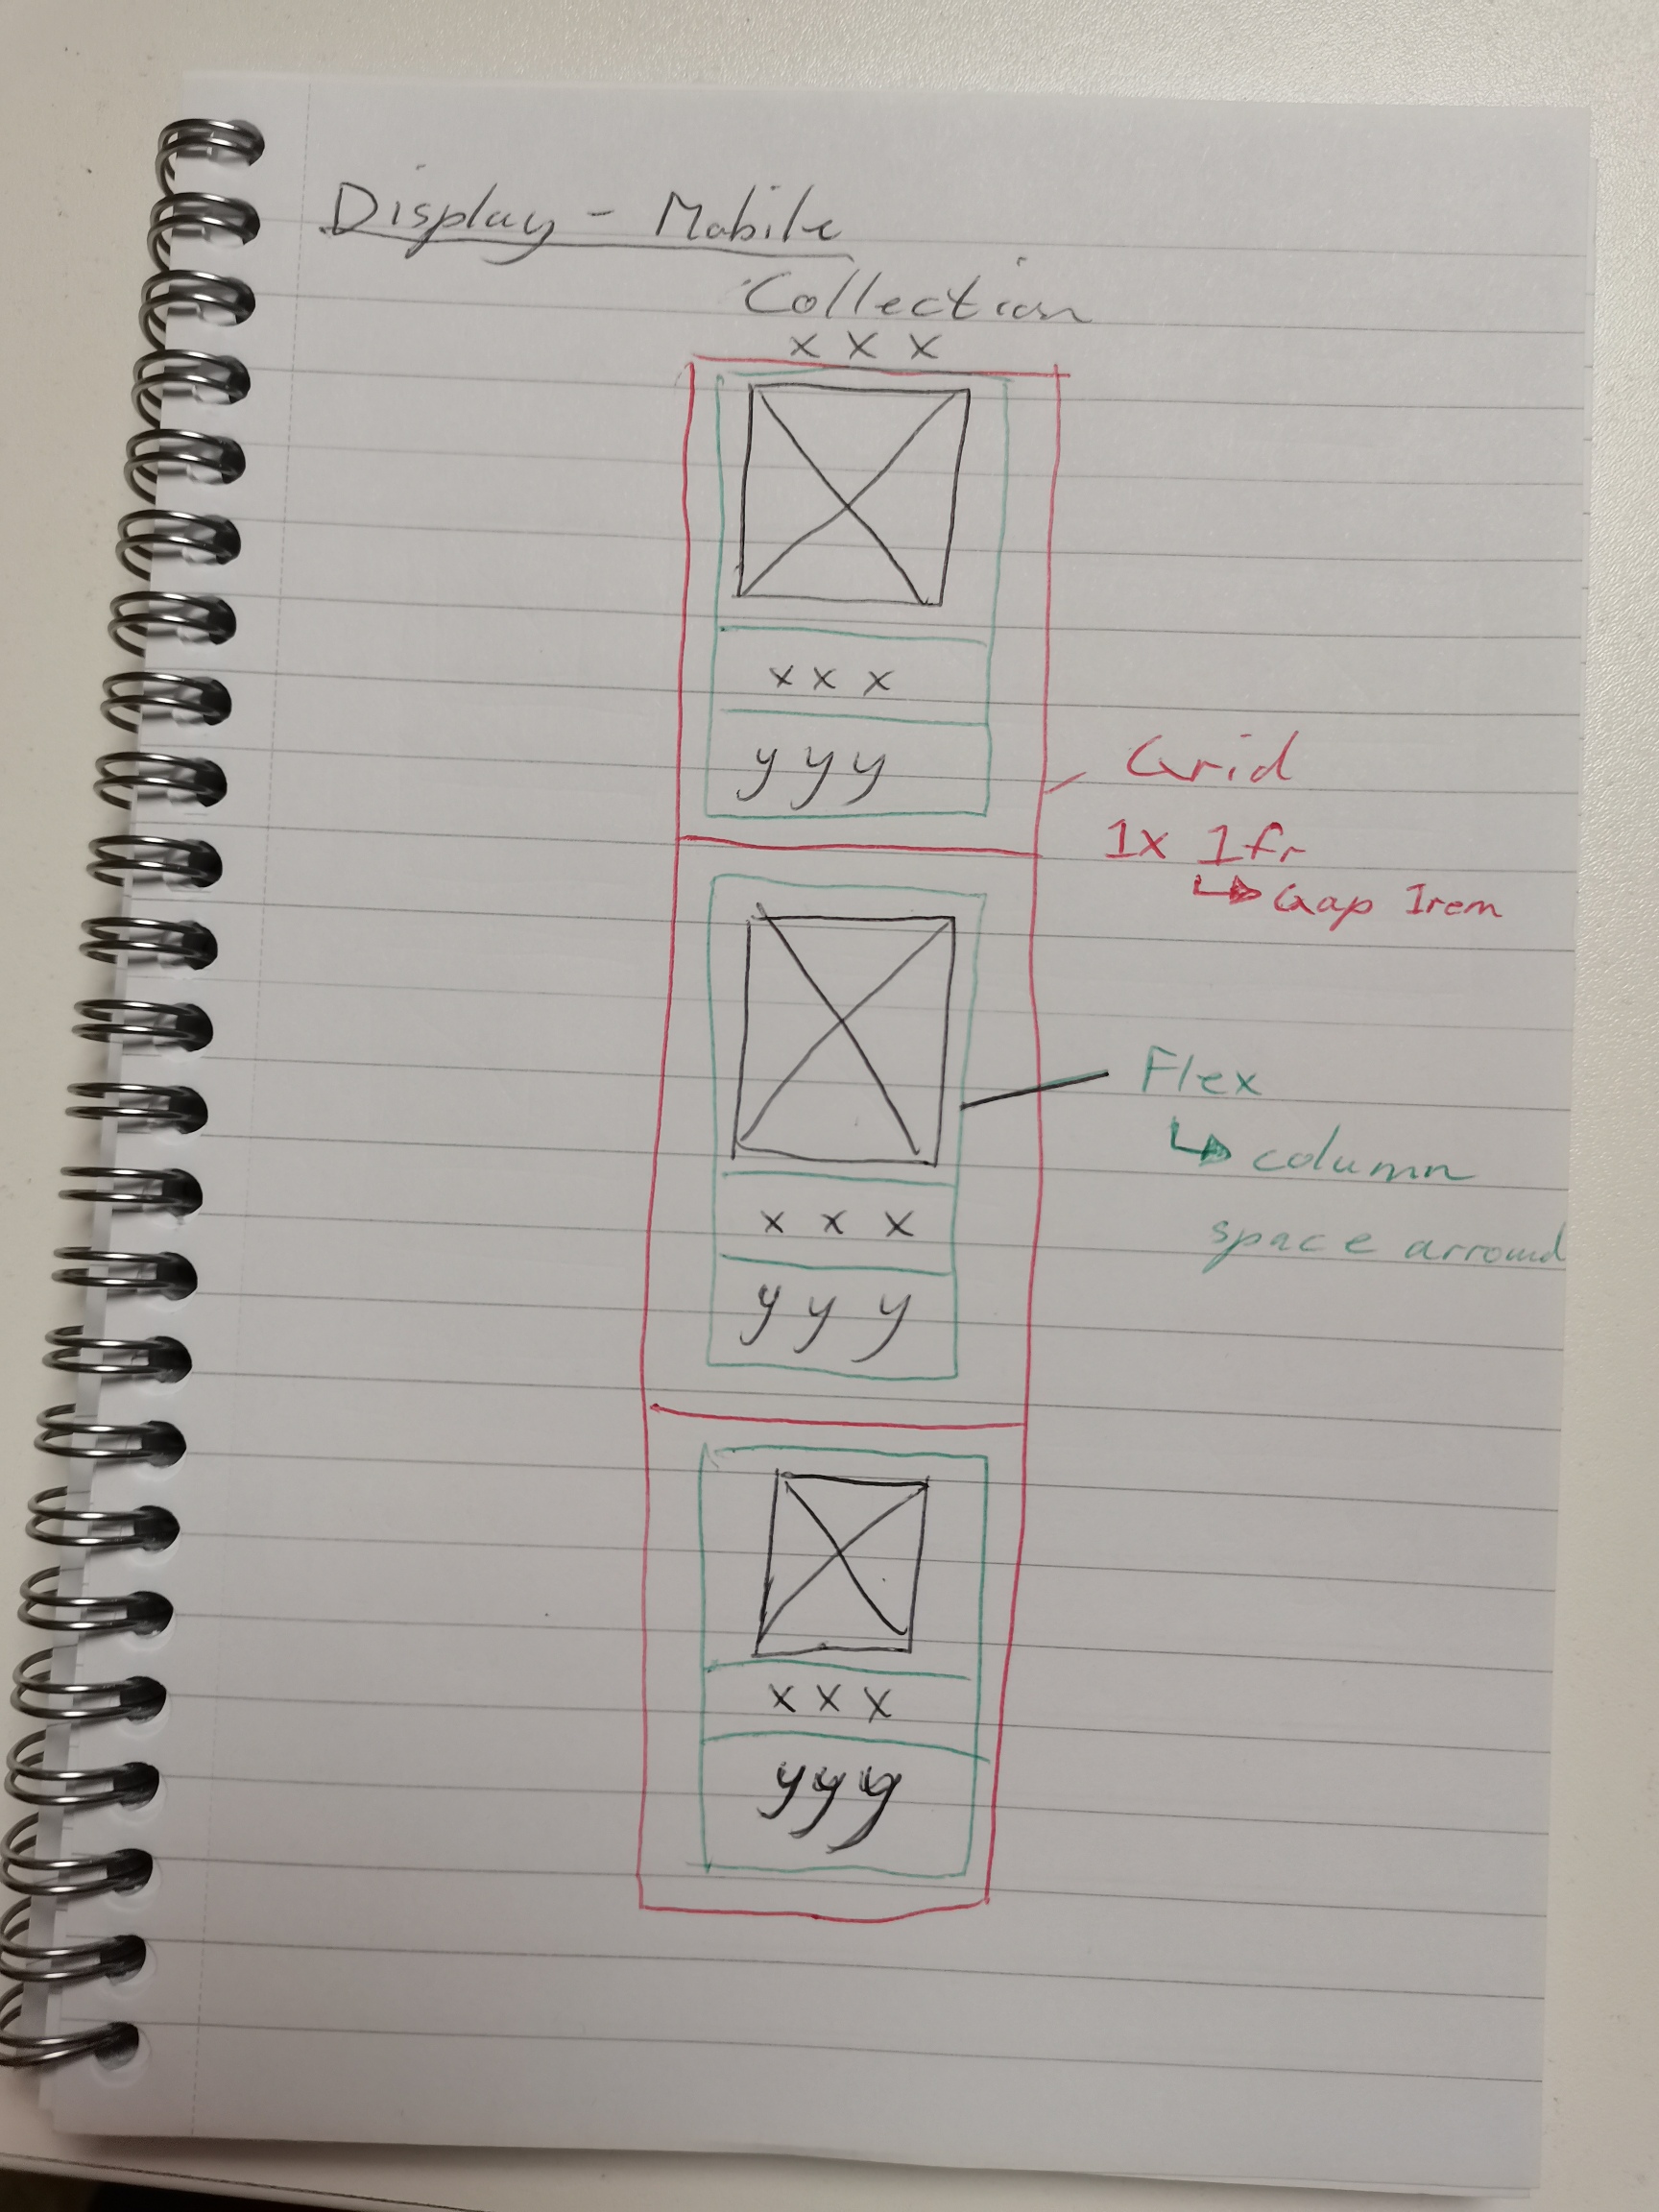 Display - Mobile
Collection
x x x
x x x
y y y
Grid
1x 1fr
Gap 1rem
Flex
column
space arround
x x x
y y y
x x x
y y y